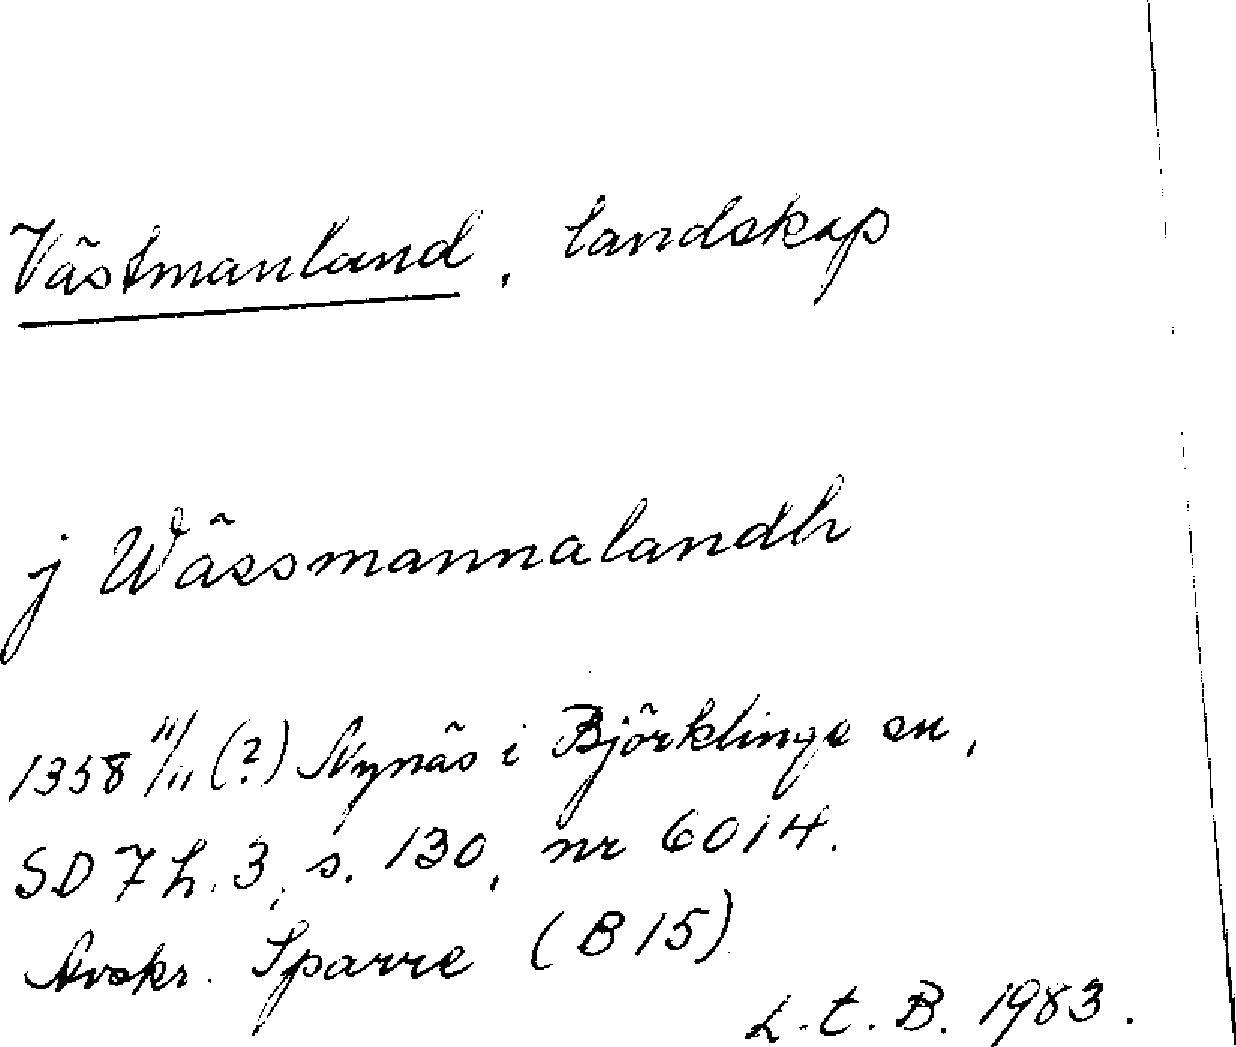 Västmanland, landskap
j Wässmannalandh
1358 11/11 (?) Nynäs i Björklinge sn,
SD 7 h. 3, s. 130, nr 6014.
Avskr. Sparre (B 15)
L. t. B. 1983.